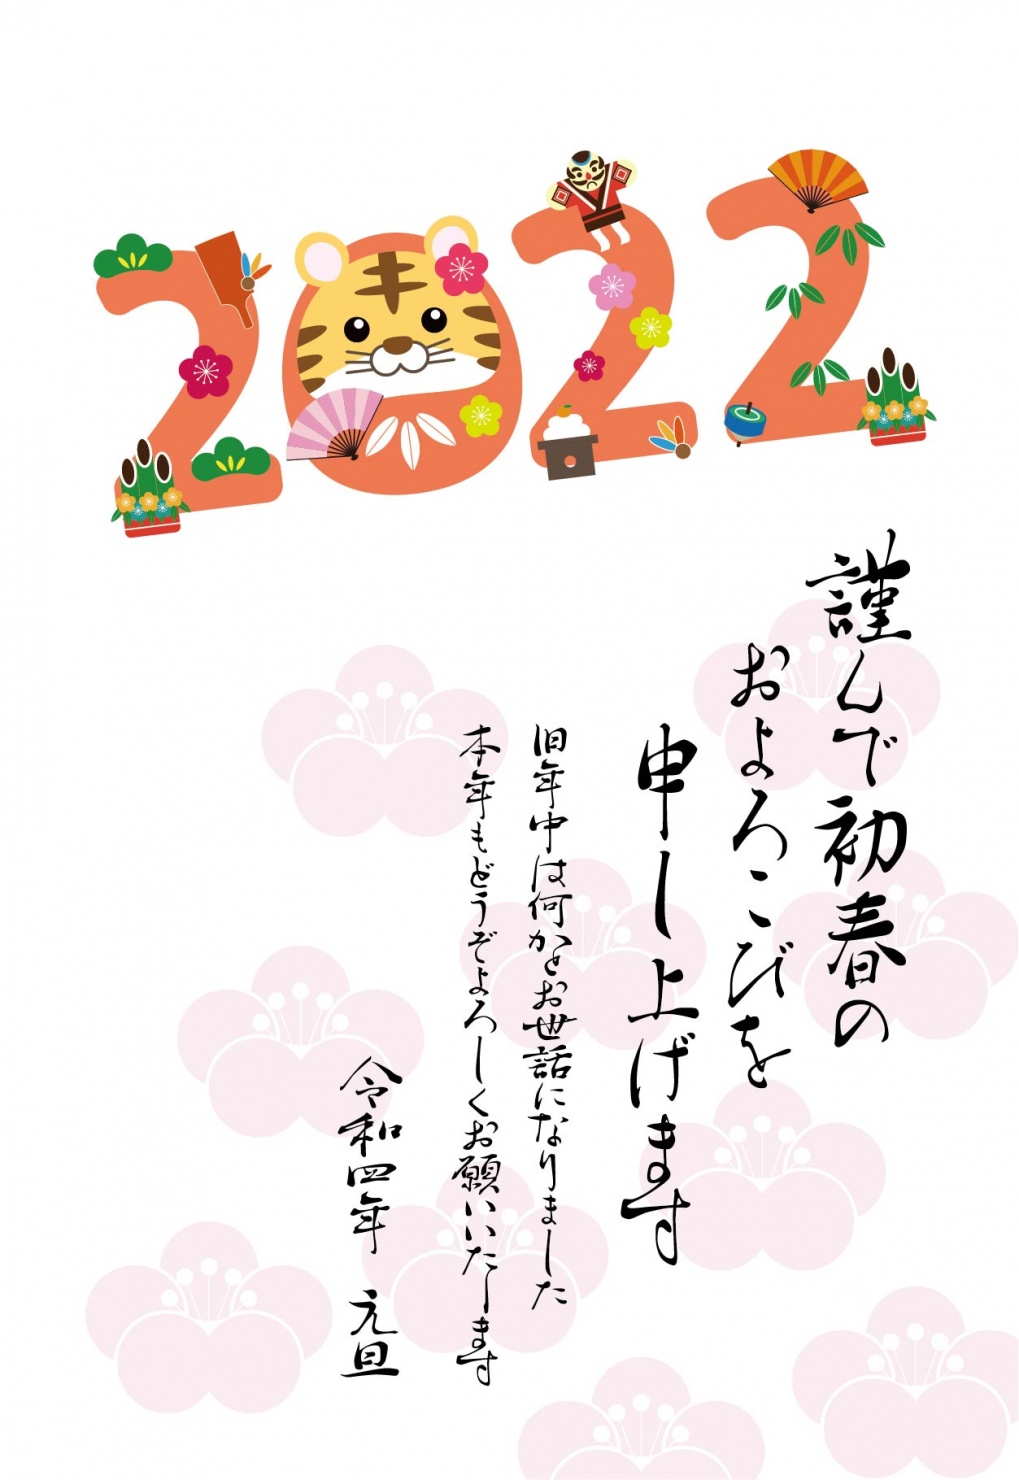 2022
謹んで初春の
およろこびを
申し上げます
旧年中は何かとお世話になりました
本年もどうぞよろしくお願いいたします
令和四年 元旦